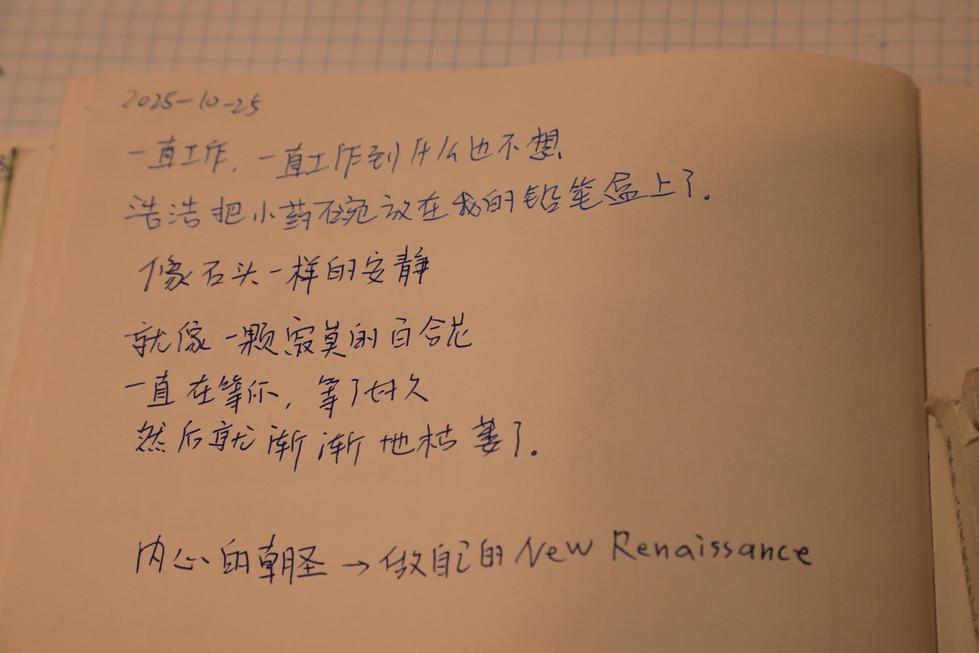 2025-10-25
一直工作，一直工作到什么也不想
浩浩把小药碗放在我的铅笔盒上了.
像石头一样的安静
就像一颗寂寞的百合花
一直在等你，等了好久
然后就渐渐地枯萎了.
内心的朝圣→做自己的New Renaissance